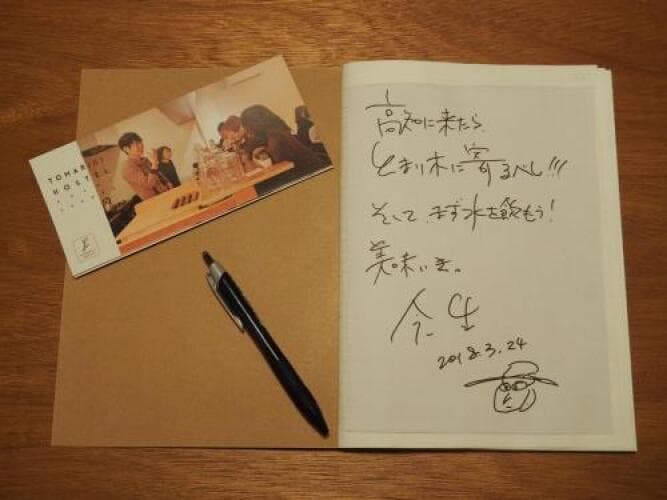 TOMARIGI
HOSTEL
高知に来たら
とまり木に寄るべし!!!
そして、まず水を飲もう!
美味いぞ。
今生
2018.3.24